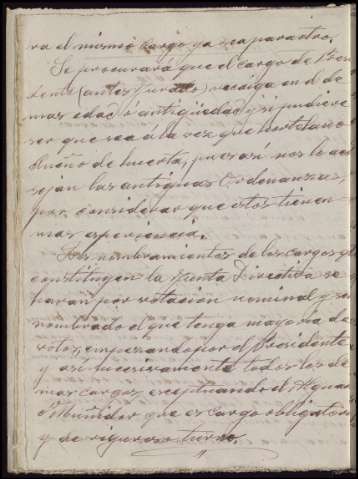 ra el mismo cargo ya sea para otro.
Se procurará que el cargo de Presi
dente (antes Jurado) recaiga en el de
mas edad ó antigüedad y si pudiese
ser que sea á la vez que hortelano
dueño de huerta, pues así nos lo acon
sejan las antiguas Ordenanzas,
por considerar que estos tienen
mas esperiencia.
Los nombramientos de los cargos q
constituyen la Junta Directiva se
harán por votacion nominal y será
nombrado el que tenga mayoria de
votos, empezando por el Presidente
y así sucesivamente todos los de
mas cargos, exceptuando el
Muñidor que es cargo obligatorio
y de riguroso turno.